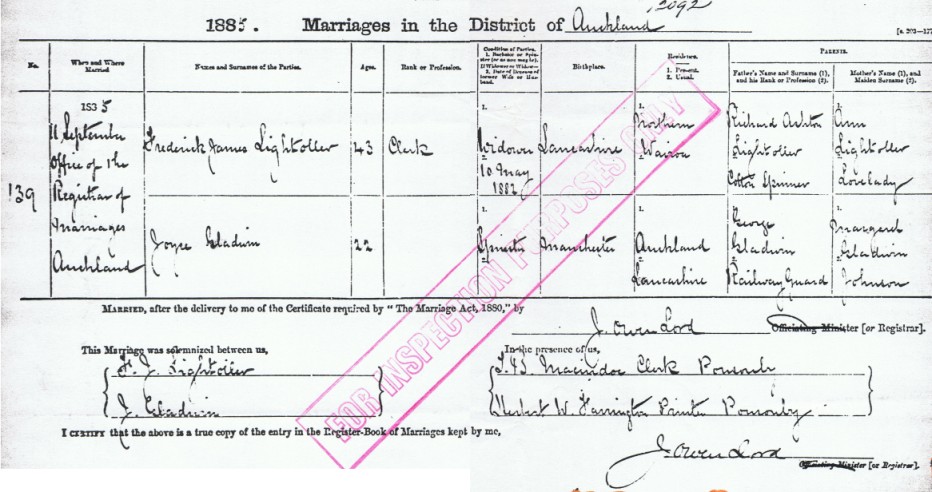 2092
1885. Marriages in the District of Auckland
No.
When and Where Married
Names and Surnames of the Parties.
Ages.
Rank or Profession.
Condition of Parties.
1. Bachelor or Spinster (or as case may be).
If Widower or Widow—
2. Date of Decease of former Wife or Husband.
Birthplace.
Residence.
1. Present.
2. Usual.
PARENTS.
Father's Name and Surname (1), and his Rank or Profession (2).
Mother's Name (1), and Maiden Surname (2).
139
1885
11 September
Office of the
Registrar of
Marriages
Auckland
Frederick James Lightoller
43
Clerk
1.
Widower
2.
10 May
1882
Lancashire
1.
Northern
Wairoa
Richard Ashton
Lightoller
Cotton Spinner
Ann
Lightoller
Lovelady
Joyce Gladwin
22
1.
Spinster
Manchester
1.
Auckland
2.
Lancashire
George
Gladwin
Railway Guard
Margaret
Gladwin
Johnson
MARRIED, after the delivery to me of the Certificate required by "The Marriage Act, 1880," by
J. Owen Lord
Officiating Minister [or Registrar].
This Marriage was solemnized between us,
F. J. Lightoller
J. Gladwin
In the presence of us,
Macindoe Clerk Ponsonby
Herbert W. Farrington Printer Ponsonby
I CERTIFY that the above is a true copy of the entry in the Register-Book of Marriages kept by me,
J. Owen Lord
Officiating Minister [or Registrar].
FOR INSPECTION PURPOSES ONLY